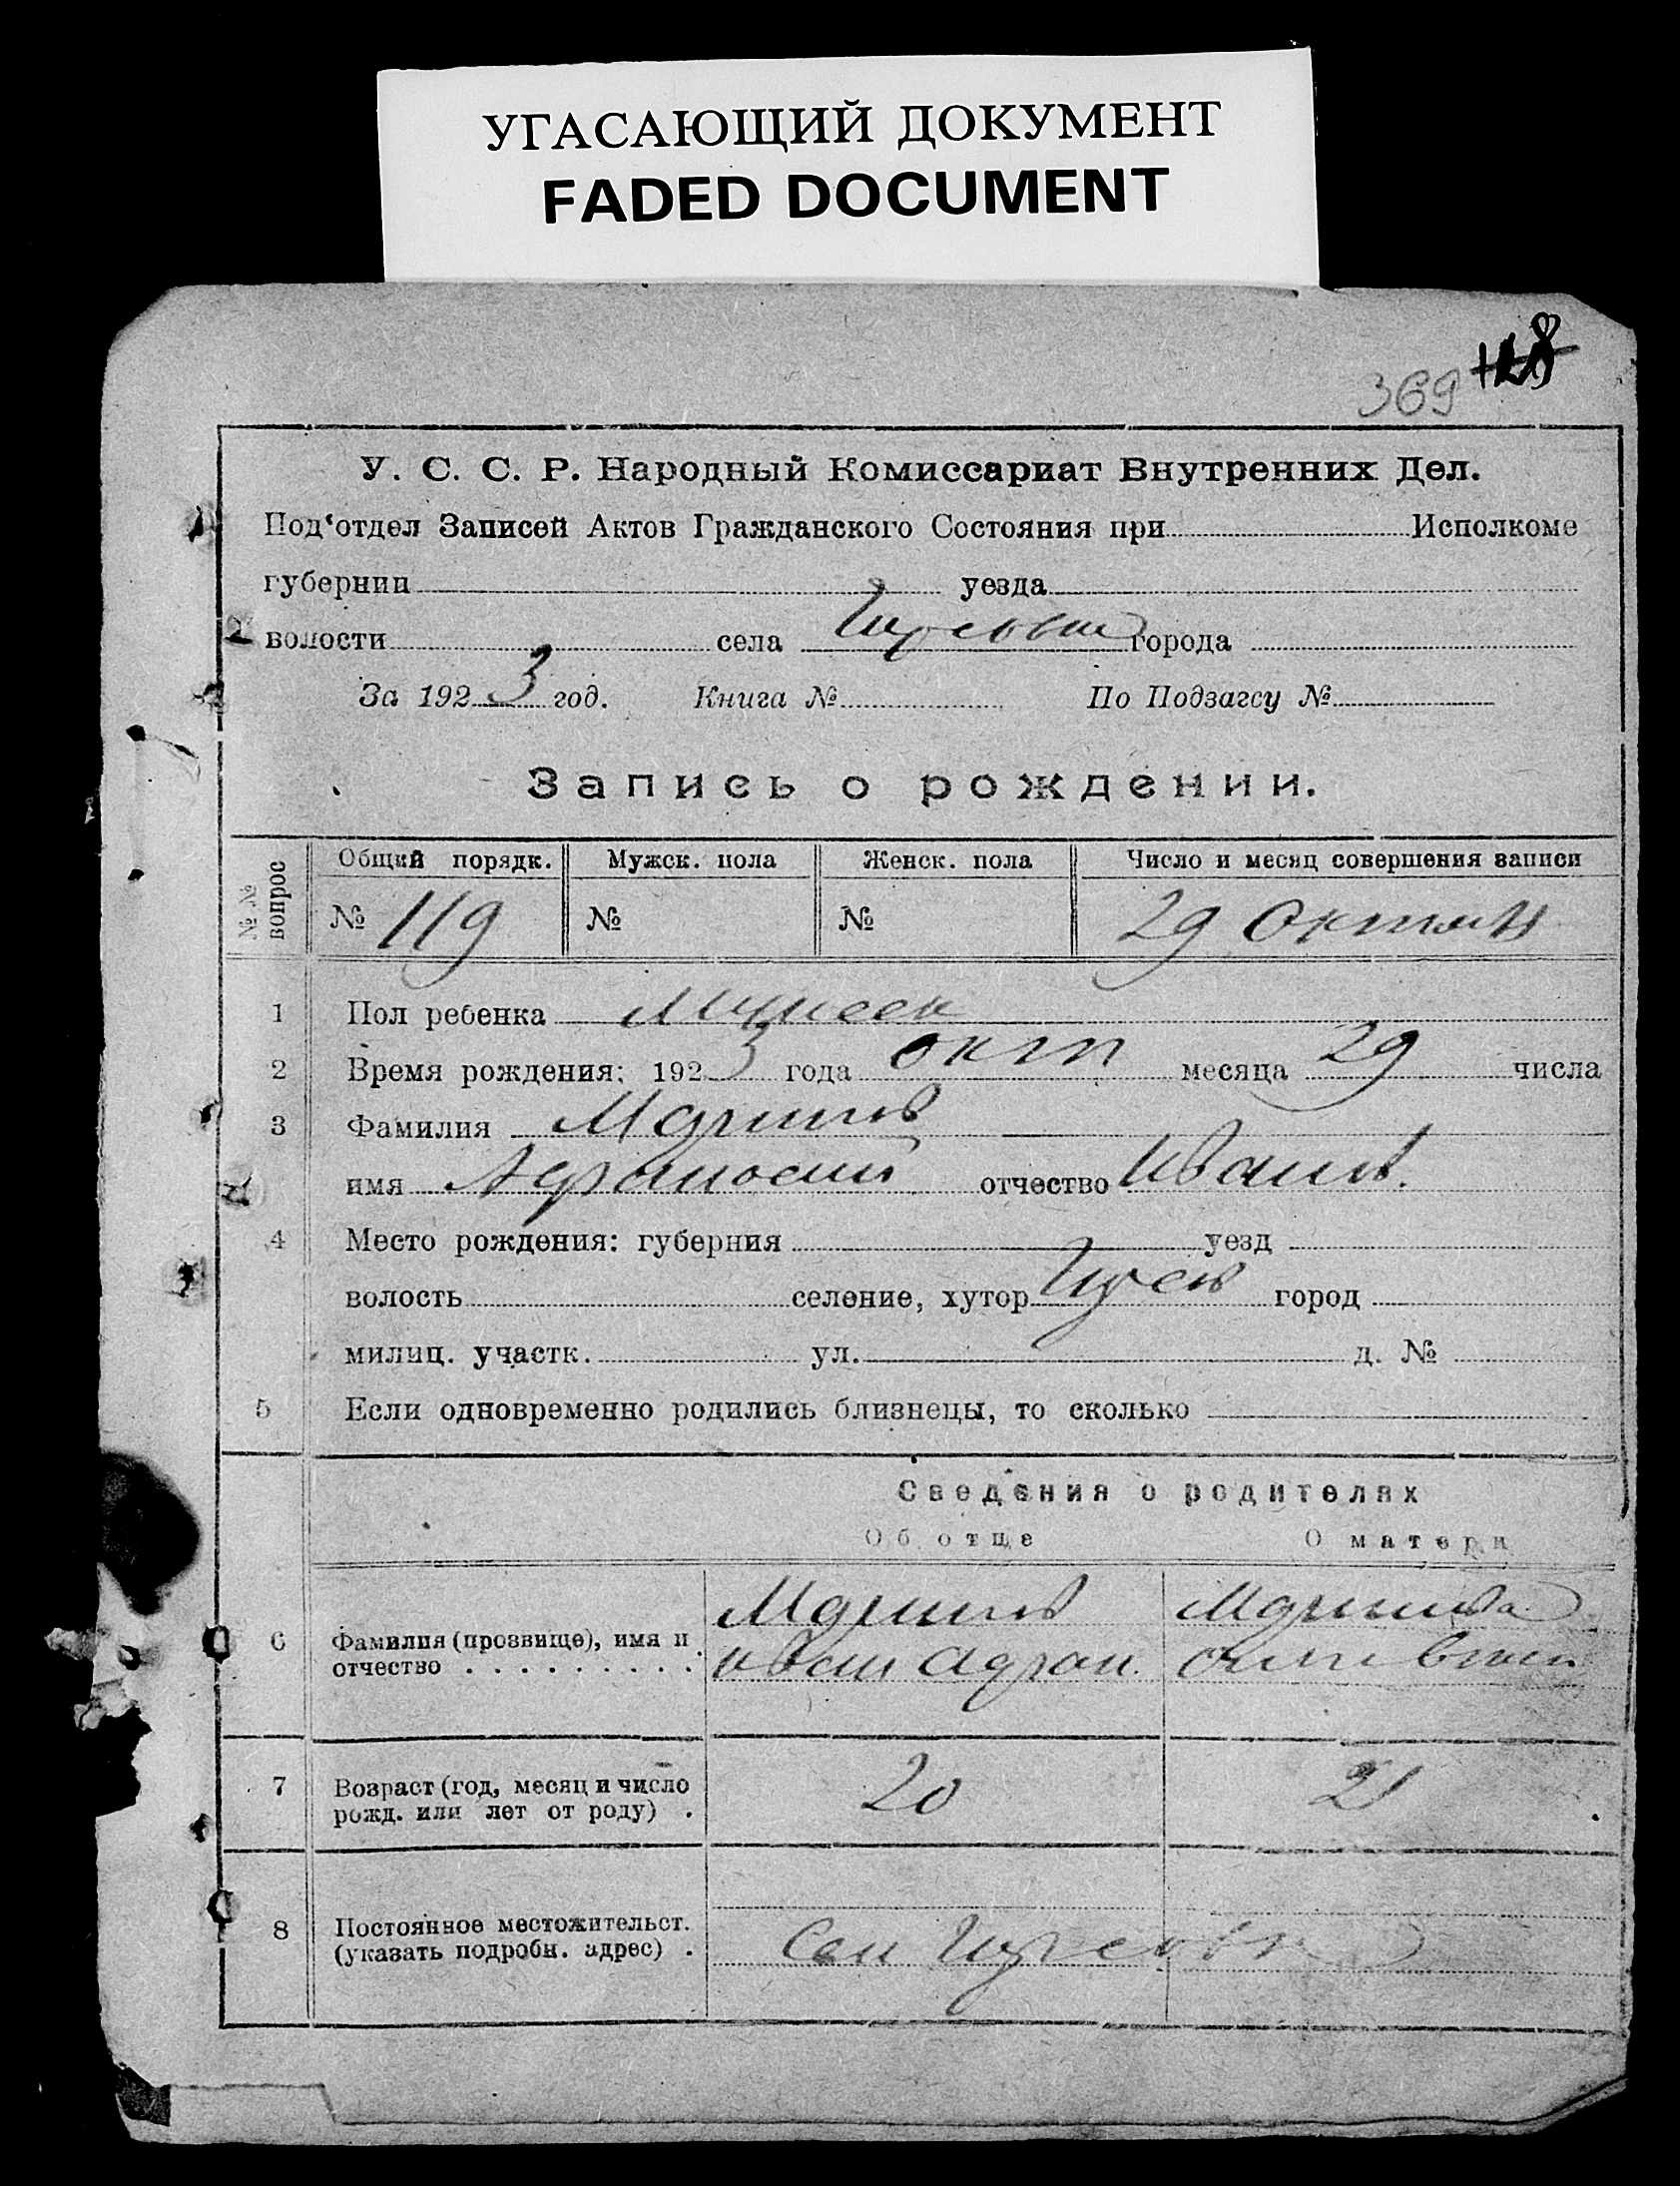 УГАСАЮЩИЙ ДОКУМЕНТ
FADED DOCUMENT
369 118
У. С. С. Р. Народный Комиссариат Внутренних Дел.
Под‘отдел Записей Актов Гражданского Состояния при Исполкоме
губернии уезда
волости села города
За 1923 год. Книга № По Подзагсу №
Запись о рождении.
№ № вопрос
Общий порядк. Мужск. пола Женск. пола Число и месяц совершения записи
№ 119 № № 29 Октяб
1 Пол ребенка
2 Время рождения: 1923 года окт месяца 29 числа
3 Фамилия
имя отчество Иванов.
4 Место рождения: губерния уезд
волость селение, хутор город
милиц. участк. ул. д. №
5 Если одновременно родились близнецы, то сколько
Сведения о родителях
Об отце О матери
6 Фамилия (прозвище), имя и
отчество Иван
7 Возраст (год, месяц и число
рожд. или лет от роду) . 20 21
8 Постоянное местожительст.
(указать подробн. адрес) .